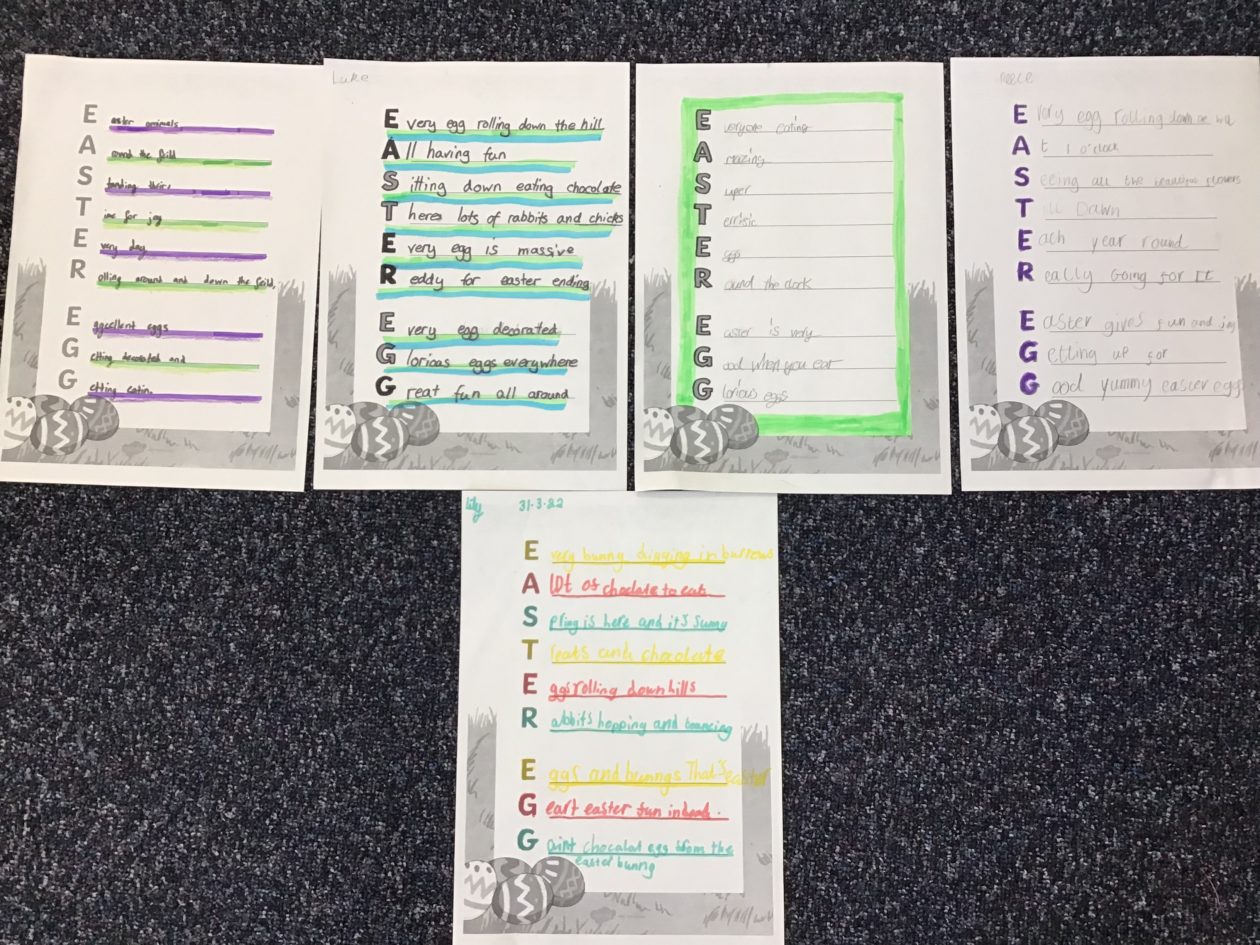 Easter animals
Around the feild
Standing
Time for joy
Every day
Rolling around and down the feild.
Eggcellent eggs
Getting decorated and
Getting eatin.
Luke
Every egg rolling down the hill
All having fun
Sitting down eating chocolate
Theres lots of rabbits and chicks
Every egg is massive
Reddy for easter ending
Every egg decorated
Glorious eggs everywhere
Great fun all around
Everyone eating
Amazing
Super
Eggs
Round the clock
Easter is very
Good when you eat
Glorious eggs
Reece
Every egg rolling down
At 1 o'clock
Seeing all the beautiful flowers
Till Dawn
Each year round
Really Going for It
Easter gives fun and joy
Getting up for
Good yummy easter eggs
Lily 31-3-22
Every bunny digging in burrows
A lot of choclate to eat
Spring is here and it's sunny
Treats and chocolate
Eggs rolling down hills
Rabbits hopping and bouncing
Eggs and bunnys That's easter
Geart easter fun indeed.
Gaint chocalat egg from the
easter bunny